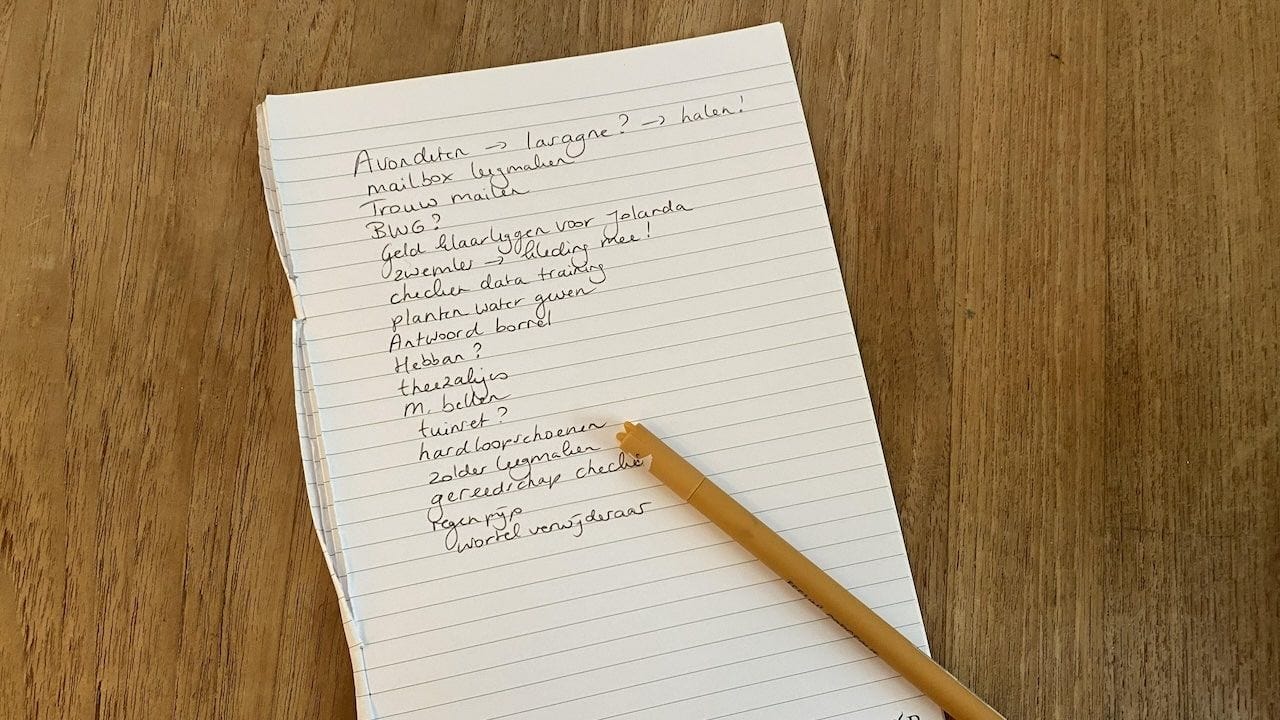 Avondeten → lasagne? → halen!
mailbox leegmaken
Trouw mailen
BWG?
Geld klaarleggen voor Jolanda
zwemles → kleding mee!
checken data training
planten water geven
Antwoord borrel
Hebban?
theezakjes
M. bellen
tuinset?
hardloopschoenen
zolder leegmaken
gereedschap
regenpijp
wortel verwijderaar